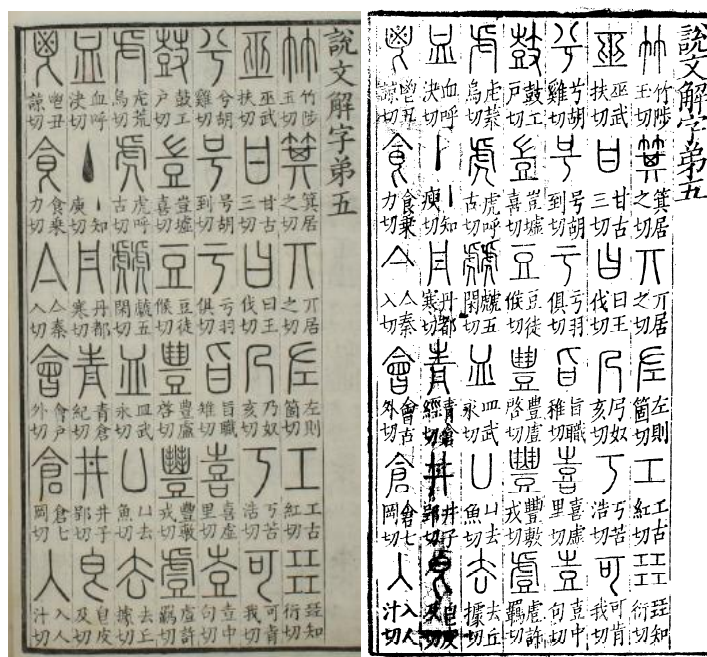 說文解字弟五
竹 竹陟玉切 箕 箕居之切 丌 丌居之切 左 左則箇切 工 工古紅切 㠭 㠭知衍切
巫 巫武扶切 甘 甘古三切 曰 曰王伐切 乃 乃奴亥切 丂 丂苦浩切 可 可肯我切
兮 兮胡雞切 号 号胡到切 亏 亏羽俱切 旨 旨職雉切 喜 喜虛里切 壴 壴中句切
鼓 鼓工戶切 豈 豈墟喜切 豆 豆徒候切 豊 豊盧啓切 豐 豐敷戎切 䖒 䖒許羈切
虍 虍荒烏切 虎 虎呼古切 虤 虤五閑切 皿 皿武永切 凵 凵去魚切 去 去丘據切
血 血呼決切 丶 丶知庾切 丹 丹都寒切 青 青倉紀切 井 井子郢切 皀 皀皮及切
鬯 鬯丑諒切 食 食乘力切 亼 亼秦入切 會 會戶外切 倉 倉七岡切 入 入人汁切
說文解字弟五
竹 竹陟王切 箕 箕居之切 丌 丌居之切 左 左則箇切 工 工古紅切 㠭 㠭知衍切
巫 巫武扶切 甘 甘古三切 曰 曰王伐切 乃 乃奴亥切 丂 丂苦浩切 可 可肯我切
兮 兮胡雞切 号 号胡到切 亏 亏羽俱切 旨 旨職雉切 喜 喜虛里切 壴 壴中句切
鼓 鼓工戶切 豈 豈墟喜切 豆 豆徒候切 豊 豊盧啓切 豐 豐敷戎切 䖒 䖒許羈切
虍 虍荒烏切 虎 虎呼古切 虤 虤五閑切 皿 皿武永切 凵 凵去魚切 去 去丘據切
血 血呼決切 丨 丨知庾切 丹 丹都寒切 青 青倉經切 井 井子郢切 皀 皀皮及切
鬯 鬯丑諒切 食 食乘力切 亼 亼秦入切 會 會古外切 倉 倉七岡切 入 入人汁切